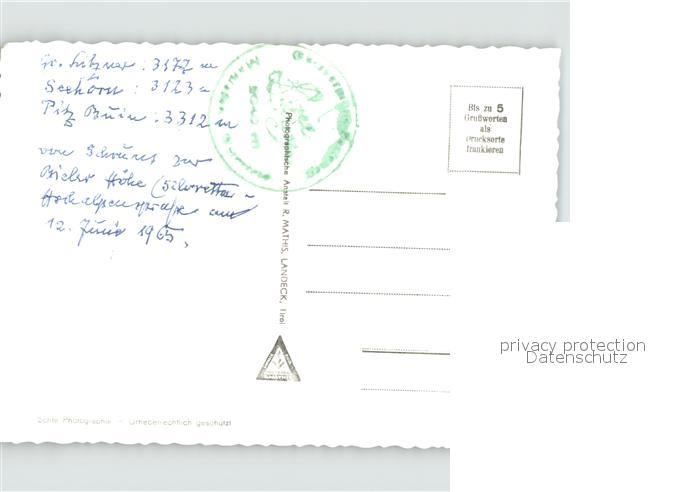 Gr. Litzner : 3177 m
Seehörn : 3123 m
Pitz Buin : 3312 m
von Schruns zur
Bieler Höhe (Silvretta-
Hochalpenstraße am
12. Juni 1965,
Photographische Anstalt R. MATHIS, LANDECK, Tirol
Bis zu 5
Grußworten
als
Drucksorte
frankieren
Echte Photographie – Urheberrechtlich geschützt
privacy protection
Datenschutz